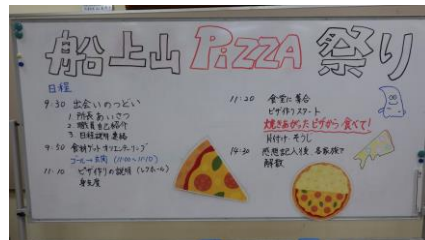 船上山 PiZZA 祭り
日程
9:30 出会いのつどい
1. 所長あいさつ
2. 職員自己紹介
3. 日程説明 連絡
9:50 食材ゲットオリエンテーリング
ゴール→玄関 (11:00~11:10)
11:10 ピザ作りの説明 (レクホール)
身支度
11:20 食堂に集合
ピザ作りスタート
焼きあがったピザから食べて!
片付け・そうじ
14:30 感想記入後 各家族で
解散